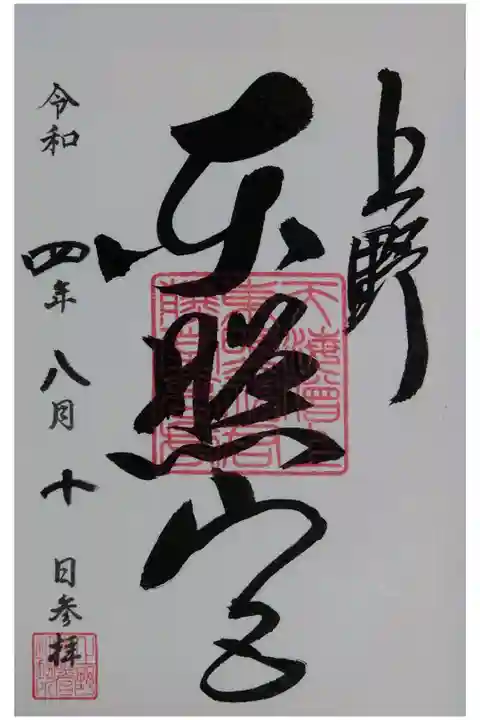 上野
東照宮
令和四年八月十日参拝